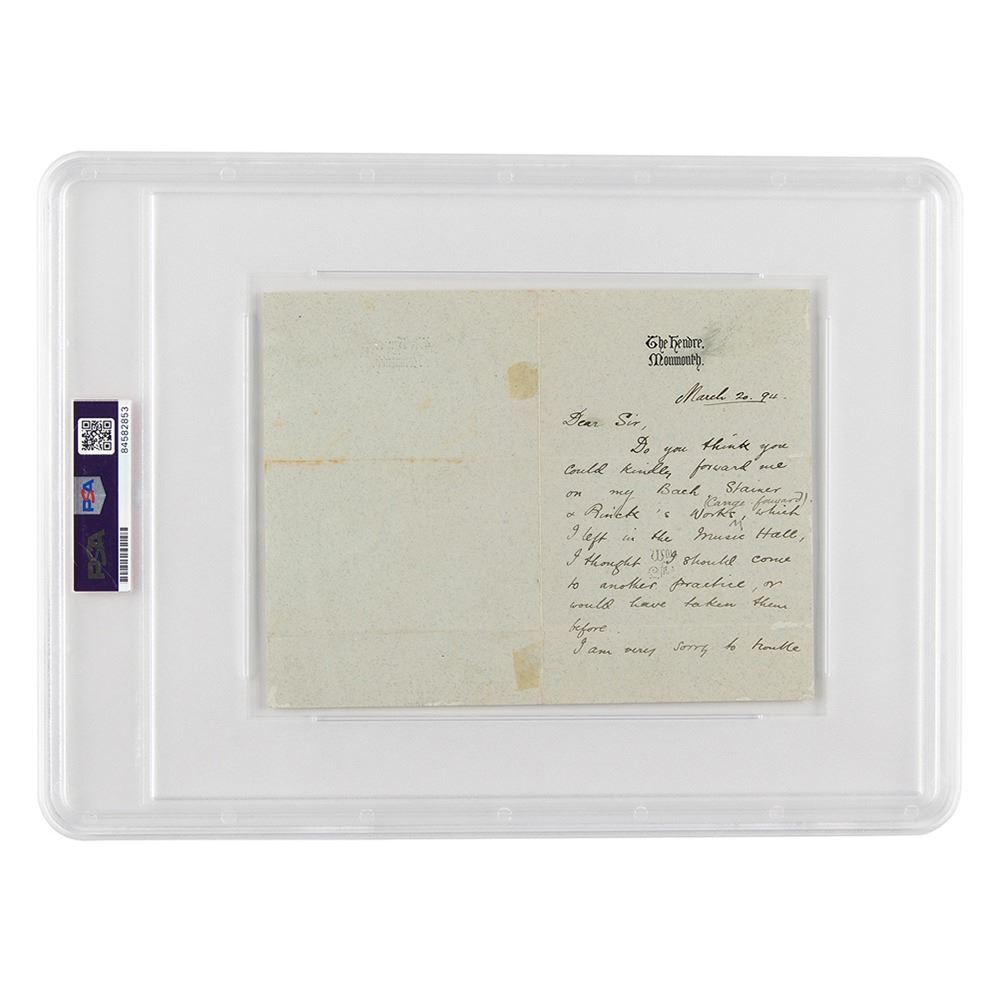 The Hendre,
Monmouth.
March 20. 94.
Dear Sir,
Do you think you
could kindly forward me
on my Bach Stainer
(Cange. forward).
& Rinck's Works, which
I left in the Music Hall,
I thought I should come
to another practice, or
would have taken them
before.
I am very sorry to trouble
84582853
PSA
PSA